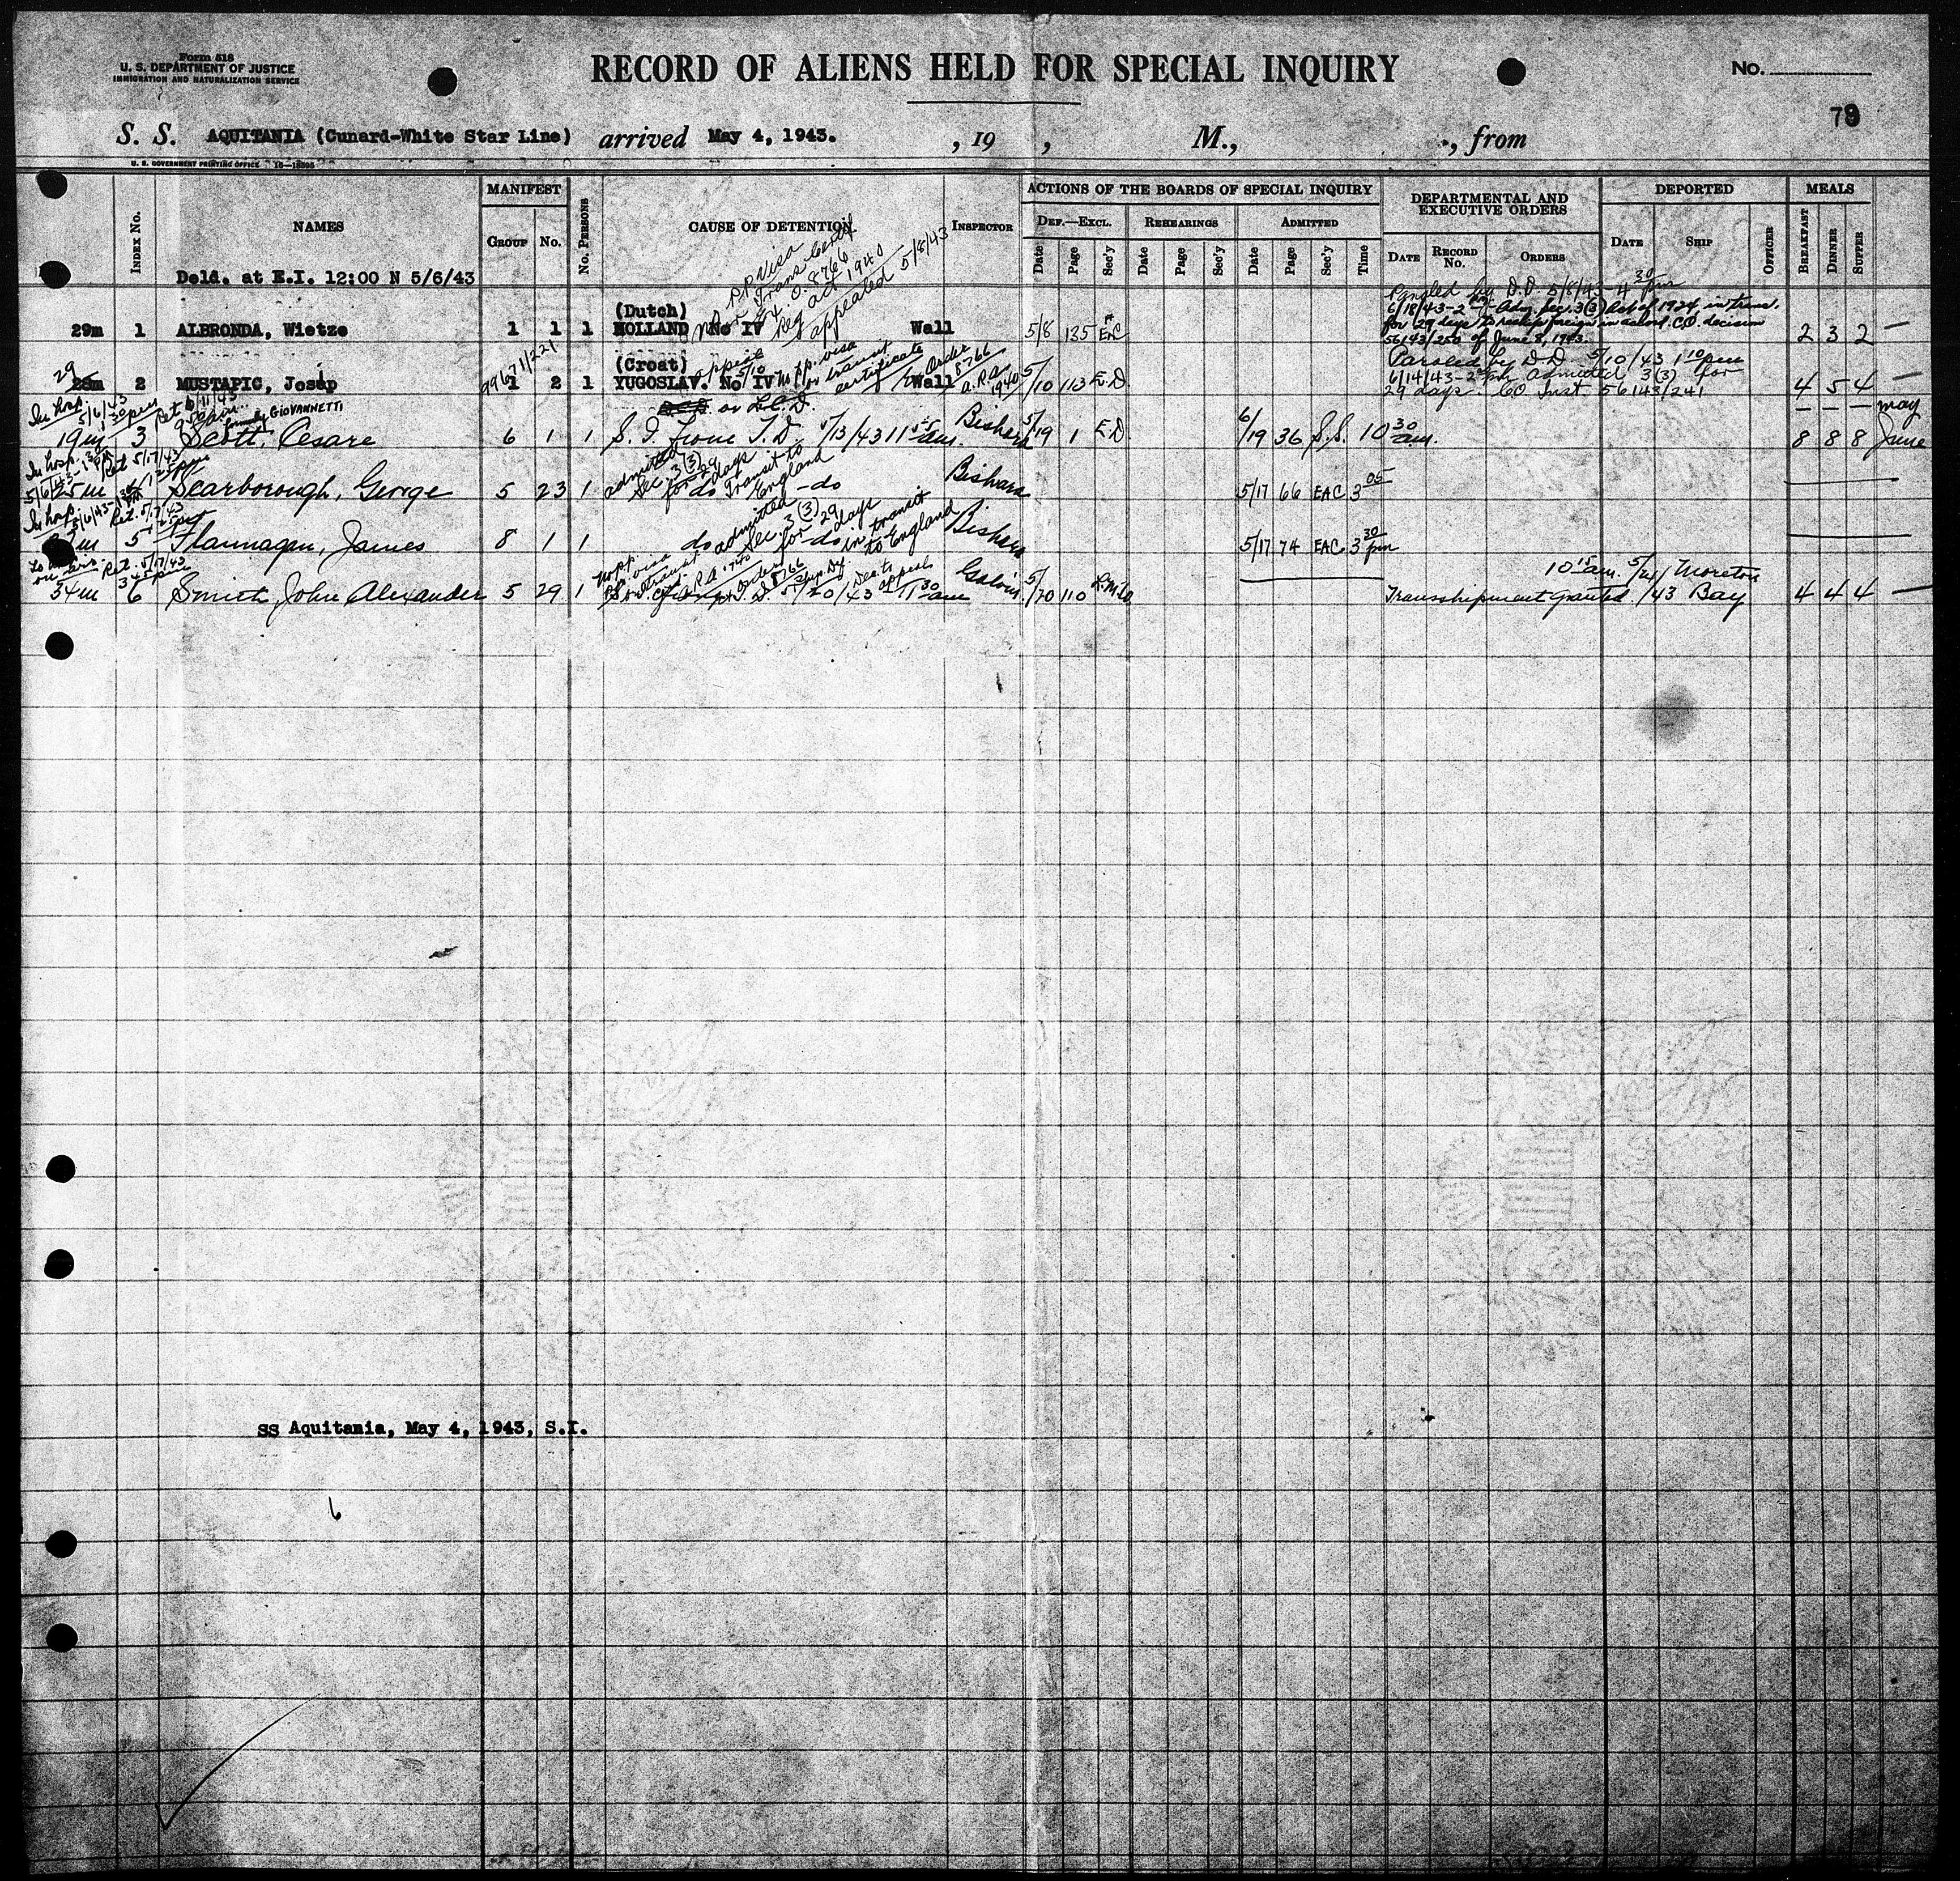 Form 518
U. S. DEPARTMENT OF JUSTICE
IMMIGRATION AND NATURALIZATION SERVICE
RECORD OF ALIENS HELD FOR SPECIAL INQUIRY
No.
79
S. S. AQUITANIA (Cunard-White Star Line) arrived May 4, 1943. , 19 , M., , from
U. S. GOVERNMENT PRINTING OFFICE
INDEX No.
NAMES
MANIFEST
GROUP
No.
No. PERSONS
CAUSE OF DETENTION
INSPECTOR
ACTIONS OF THE BOARDS OF SPECIAL INQUIRY
DEF.—EXCL.
REHEARINGS
ADMITTED
Date Page Sec'y Date Page Sec'y Date Page Sec'y Time
DEPARTMENTAL AND EXECUTIVE ORDERS
DATE
RECORD No.
ORDERS
DEPORTED
DATE
SHIP
OFFICER
MEALS
BREAKFAST
DINNER
SUPPER
Deld. at E.I. 12:00 N 5/6/43
PP Visa
or Trans Certif
O. 8766
Reg act 1940
appealed 5/8/43
Paroled by D.D. 5/8/43 - 4 30 pm
6/18/43 - 2 pm - Adm. Sec. 3(3) Act of 1924, in trans.
for 29 days to reship foreign C.O. decision
56143/250 of June 8, 1943.
(Dutch)
29m 1 ALBRONDA, Wietze 1 1 1 HOLLAND No IV Wall 5/8 135 EAC 2 3 2 —
99671/221
(Croat)
29
28m 2 MUSTAPIC, Josip 1 2 1 YUGOSLAV. No IV Wall 5/10 113 E.D. 4 5 4 —
appeal 5/10 no pp. visa or transit certificate Ex Order 8766 A.R.A. 1940
or L.C.D.
Paroled by D.D. 5/10/43 1 10 pm
6/14/43 - 2 pm admitted 3(3) for
29 days. CO Inst. 56143/241
In hosp. 5/6/43 1 30 pm Ret 6/11/43
formerly GIOVANNETTI
19m 3 Scott, Cesare 6 1 1 S. I. from T. D. 5/13/43 11 55 am. Bishara 5/19 1 E.D. 6/19 36 S.S. 10 30 am. 8 8 8
— — — May
June
In hosp. 5/6/43 - 1 30 pm Ret 5/17/43
25m 4 Scarborough, George 5 23 1 do - do Bishara 5/17 66 EAC 3 05
admitted Sec 3(3) for 29 days Transit to England
In hosp. 5/6/43 Ret. 5/17/43
5 Flannagan, James 8 1 1 do - do Bishara 5/17 74 EAC 3 30 pm
admitted Sec. 3(3) for 29 days in transit to England
Ret. 5/17/43
54m 6 Smith, John Alexander 5 29 1 5/20/43 11 30 am Galvin 5/20 110
10 15 am. 5/21/43 Moreton Bay
Transshipment Granted 4 4 4 —
ss Aquitania, May 4, 1943, S.I.
6